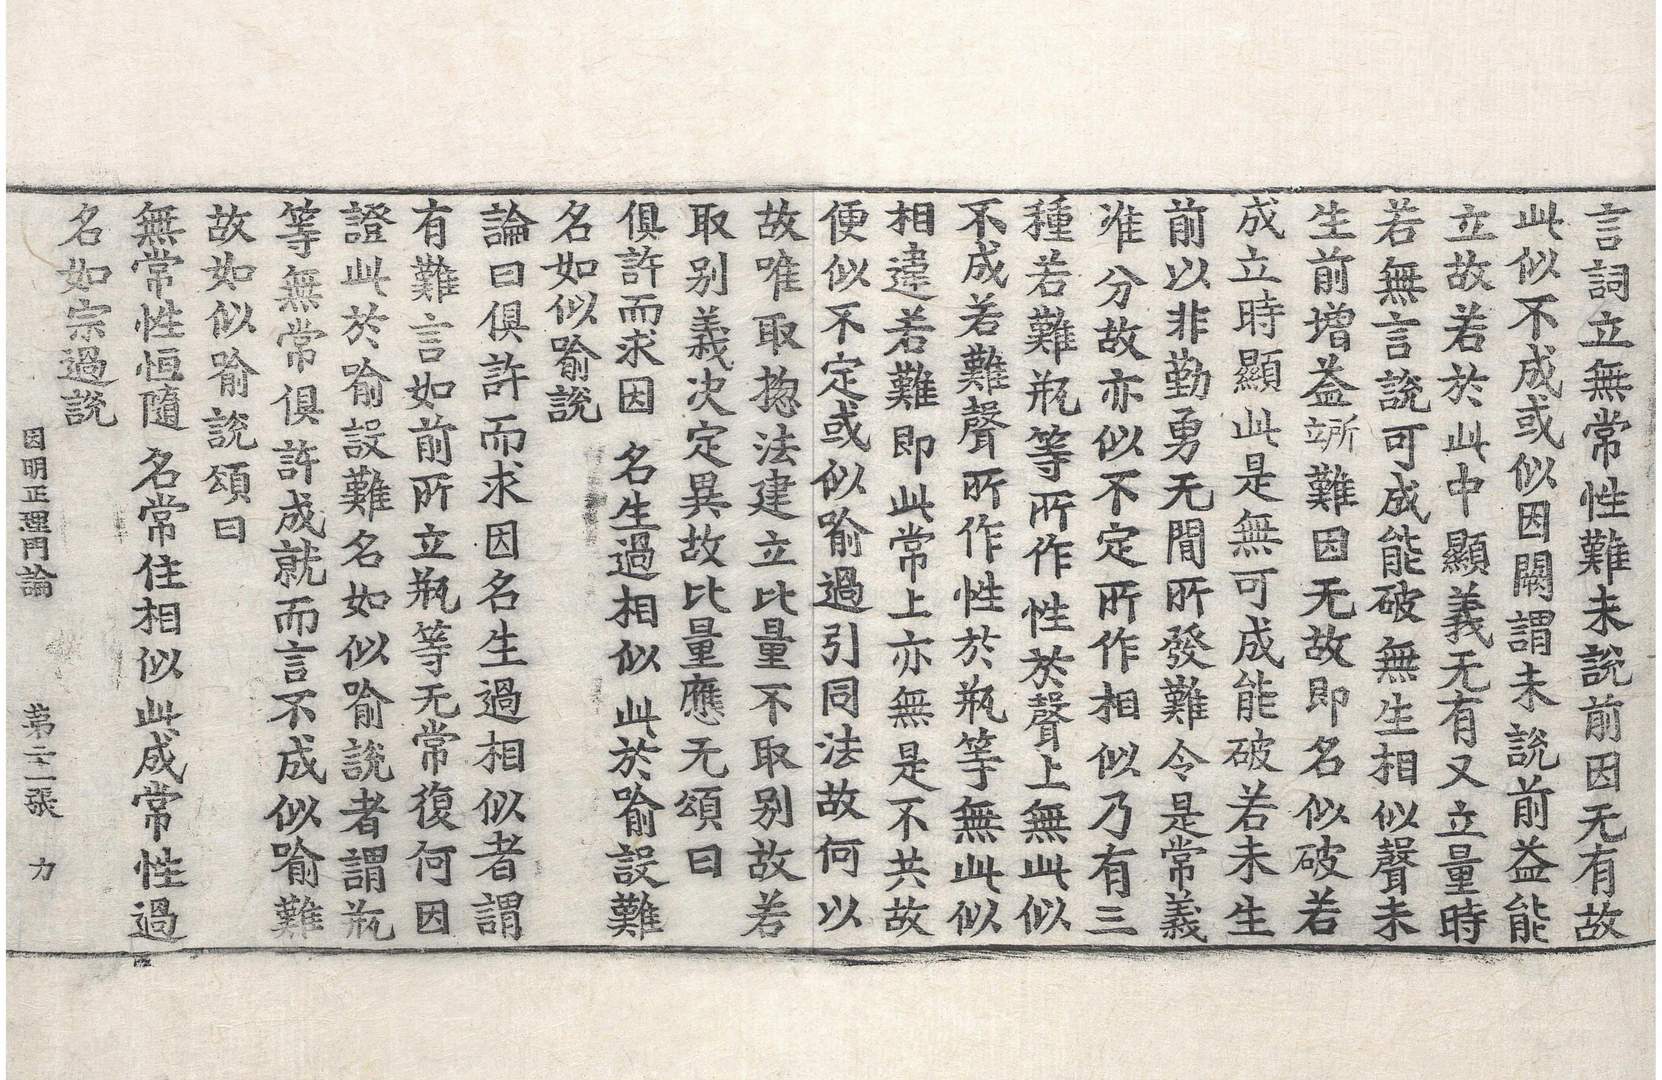 言詞立無常性難未說前因无有故
此似不成或似因闕謂未說前益能
立故若於此中顯義无有又立量時
若無言說可成能破無生相似聲未
生前增益所難因无故即名似破若
成立時顯此是無可成能破若未生
前以非勤勇无間所發難令是常義
准分故亦似不定所作相似乃有三
種若難瓶等所作性於聲上無此似
不成若難聲所作性於瓶等無此似
相違若難即此常上亦無是不共故
便似不定或似喻過引同法故何以
故唯取揔法建立比量不取別故若
取別義决定異故比量應无頌曰
俱許而求因 名生過相似 此於喻設難
名如似喻說
論曰俱許而求因名生過相似者謂
有難言如前所立瓶等无常復何因
證此於喻設難名如似喻說者謂瓶
等無常俱許成就而言不成似喻難
故如似喻說頌曰
無常性恒隨 名常住相似 此成常性過
名如宗過說
因明正理門論 第二十二張 力